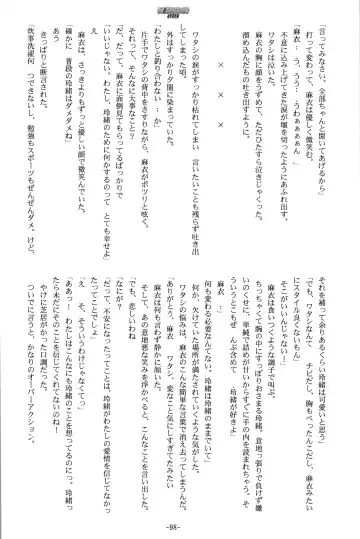 「言ってみなさい、全部ちゃんと聞いてあげるから」
打って変わって、麻衣は優しく微笑む。
「麻衣‥‥う、ううっ‥‥うわぁぁぁぁん」
不意に込み上げてきた涙が堰を切ったようにあふれ出す。
麻衣の胸に顔をうずめて、ただひたすら泣きじゃくった。
溜め込んだものを吐き出すように。
× × ×
ワタシの涙がすっかり枯れてしまい、言いたいことも残らず吐き出
してしまった頃。
外はすっかり夕闇に染まっていた。
「わたしと釣り合わない‥‥か」
片手でワタシの背中をさすりながら、麻衣がポツリと呟く。
「そんなに、そんなに大事なこと?」
「だ、だって、麻衣に面倒見てもらってるばっかりで」
「いいじゃない。わたし、玲緒のために何かするのって、とても幸せよ」
麻衣は、さっきよりもずっと優しい顔で微笑んでいた。
「確かに、普段の玲緒はダメダメね」
きっぱりと断言された。
「炊事洗濯何一つできないし、勉強もスポーツもぜんぜんダメ。けど、
それを補って余りあるくらい玲緒は可愛いと思う」
「でも、ワタシなんて‥‥チビだし、胸もぺったんこだし、麻衣みたい
にスタイル良くないもん」
「そこがいいんじゃない!」
麻衣はたしなめるような調子で語る。
ちっちゃくて胸の中にすっぽりおさまる玲緒。意地っ張りで負けず嫌
いのくせに、単純で詰めが甘いからすぐに手の内を読まれちゃう。そ
ういうところもぜーんぶ含めて 玲緒が好きよ」
「麻衣‥‥」
「何も変わる必要なんてない。玲緒は玲緒のままでいて」
何か、欠けていた場所が満たされていくような気分。
ワタシの悩みは、麻衣のこんな簡単な言葉で消え去ってしまうんだ。
「ありがとう、麻衣 ワタシ、変なこと気にしすぎてたみたい」
麻衣は何も言わず静かに頷いた。
そして、あの意地悪な笑みを浮かべると、こんなことを言うのだ。
「でも、悲しいわね」
「なにが?」
「だって、不安になったってことは、玲緒がわたしの愛情を信じてなか
ったってことでしょ」
「え そ、そういうわけじゃなくて‥‥」
「ああっ! わたしはこんなにも玲緒のことを想ってるのに。玲緒っ
たら未だにそのことを信じてくれてないのね!」
やけに芝居がかった口調だった。
ついでに言うと、かなりのオーバーアクション。
-98-